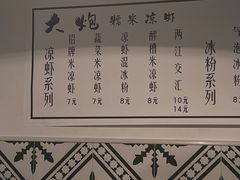 大炮 糯米凉虾
凉虾系列
招牌米凉虾 7元
蔬菜米凉虾 7元
凉虾温冰粉 8元
醪糟米凉虾 8元
两江交汇 10元 14元
冰粉系列